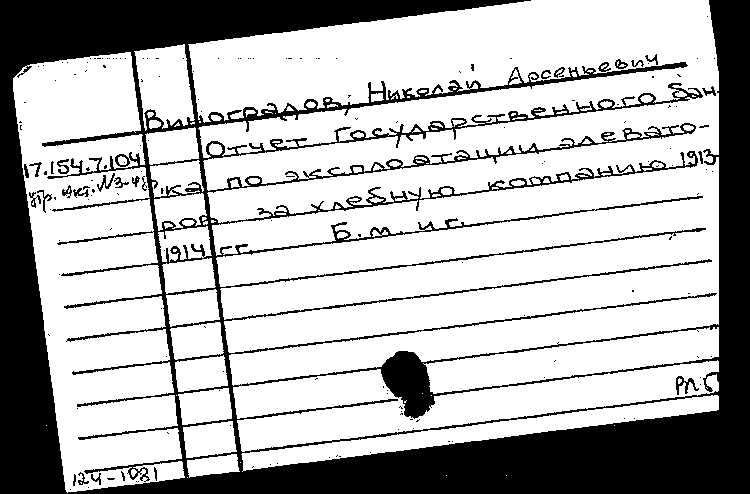 Виноградов, Николай Арсеньевич
17.154.7.104
Отчет Государственного бан-
ка по эксплоатации элевато-
ров за хлебную компанию 1913-
1914 гг. Б.м. и г.
РПБ
124-1081